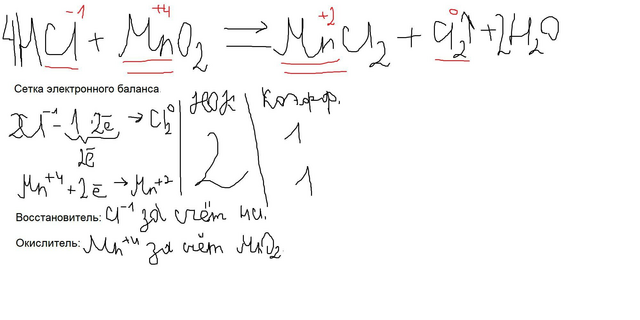 4HCl⁻¹ + Mn⁺⁴O₂ = Mn⁺²Cl₂ + Cl₂⁰↑ + 2H₂O
Сетка электронного баланса
НОК Коэффр.
2Cl⁻¹ - 1·2ē → Cl₂⁰ 1
2ē 2
Mn⁺⁴ + 2ē → Mn⁺² 1
Восстановитель: Cl⁻¹ за счёт
Окислитель: Mn⁺⁴ за счёт MnO₂